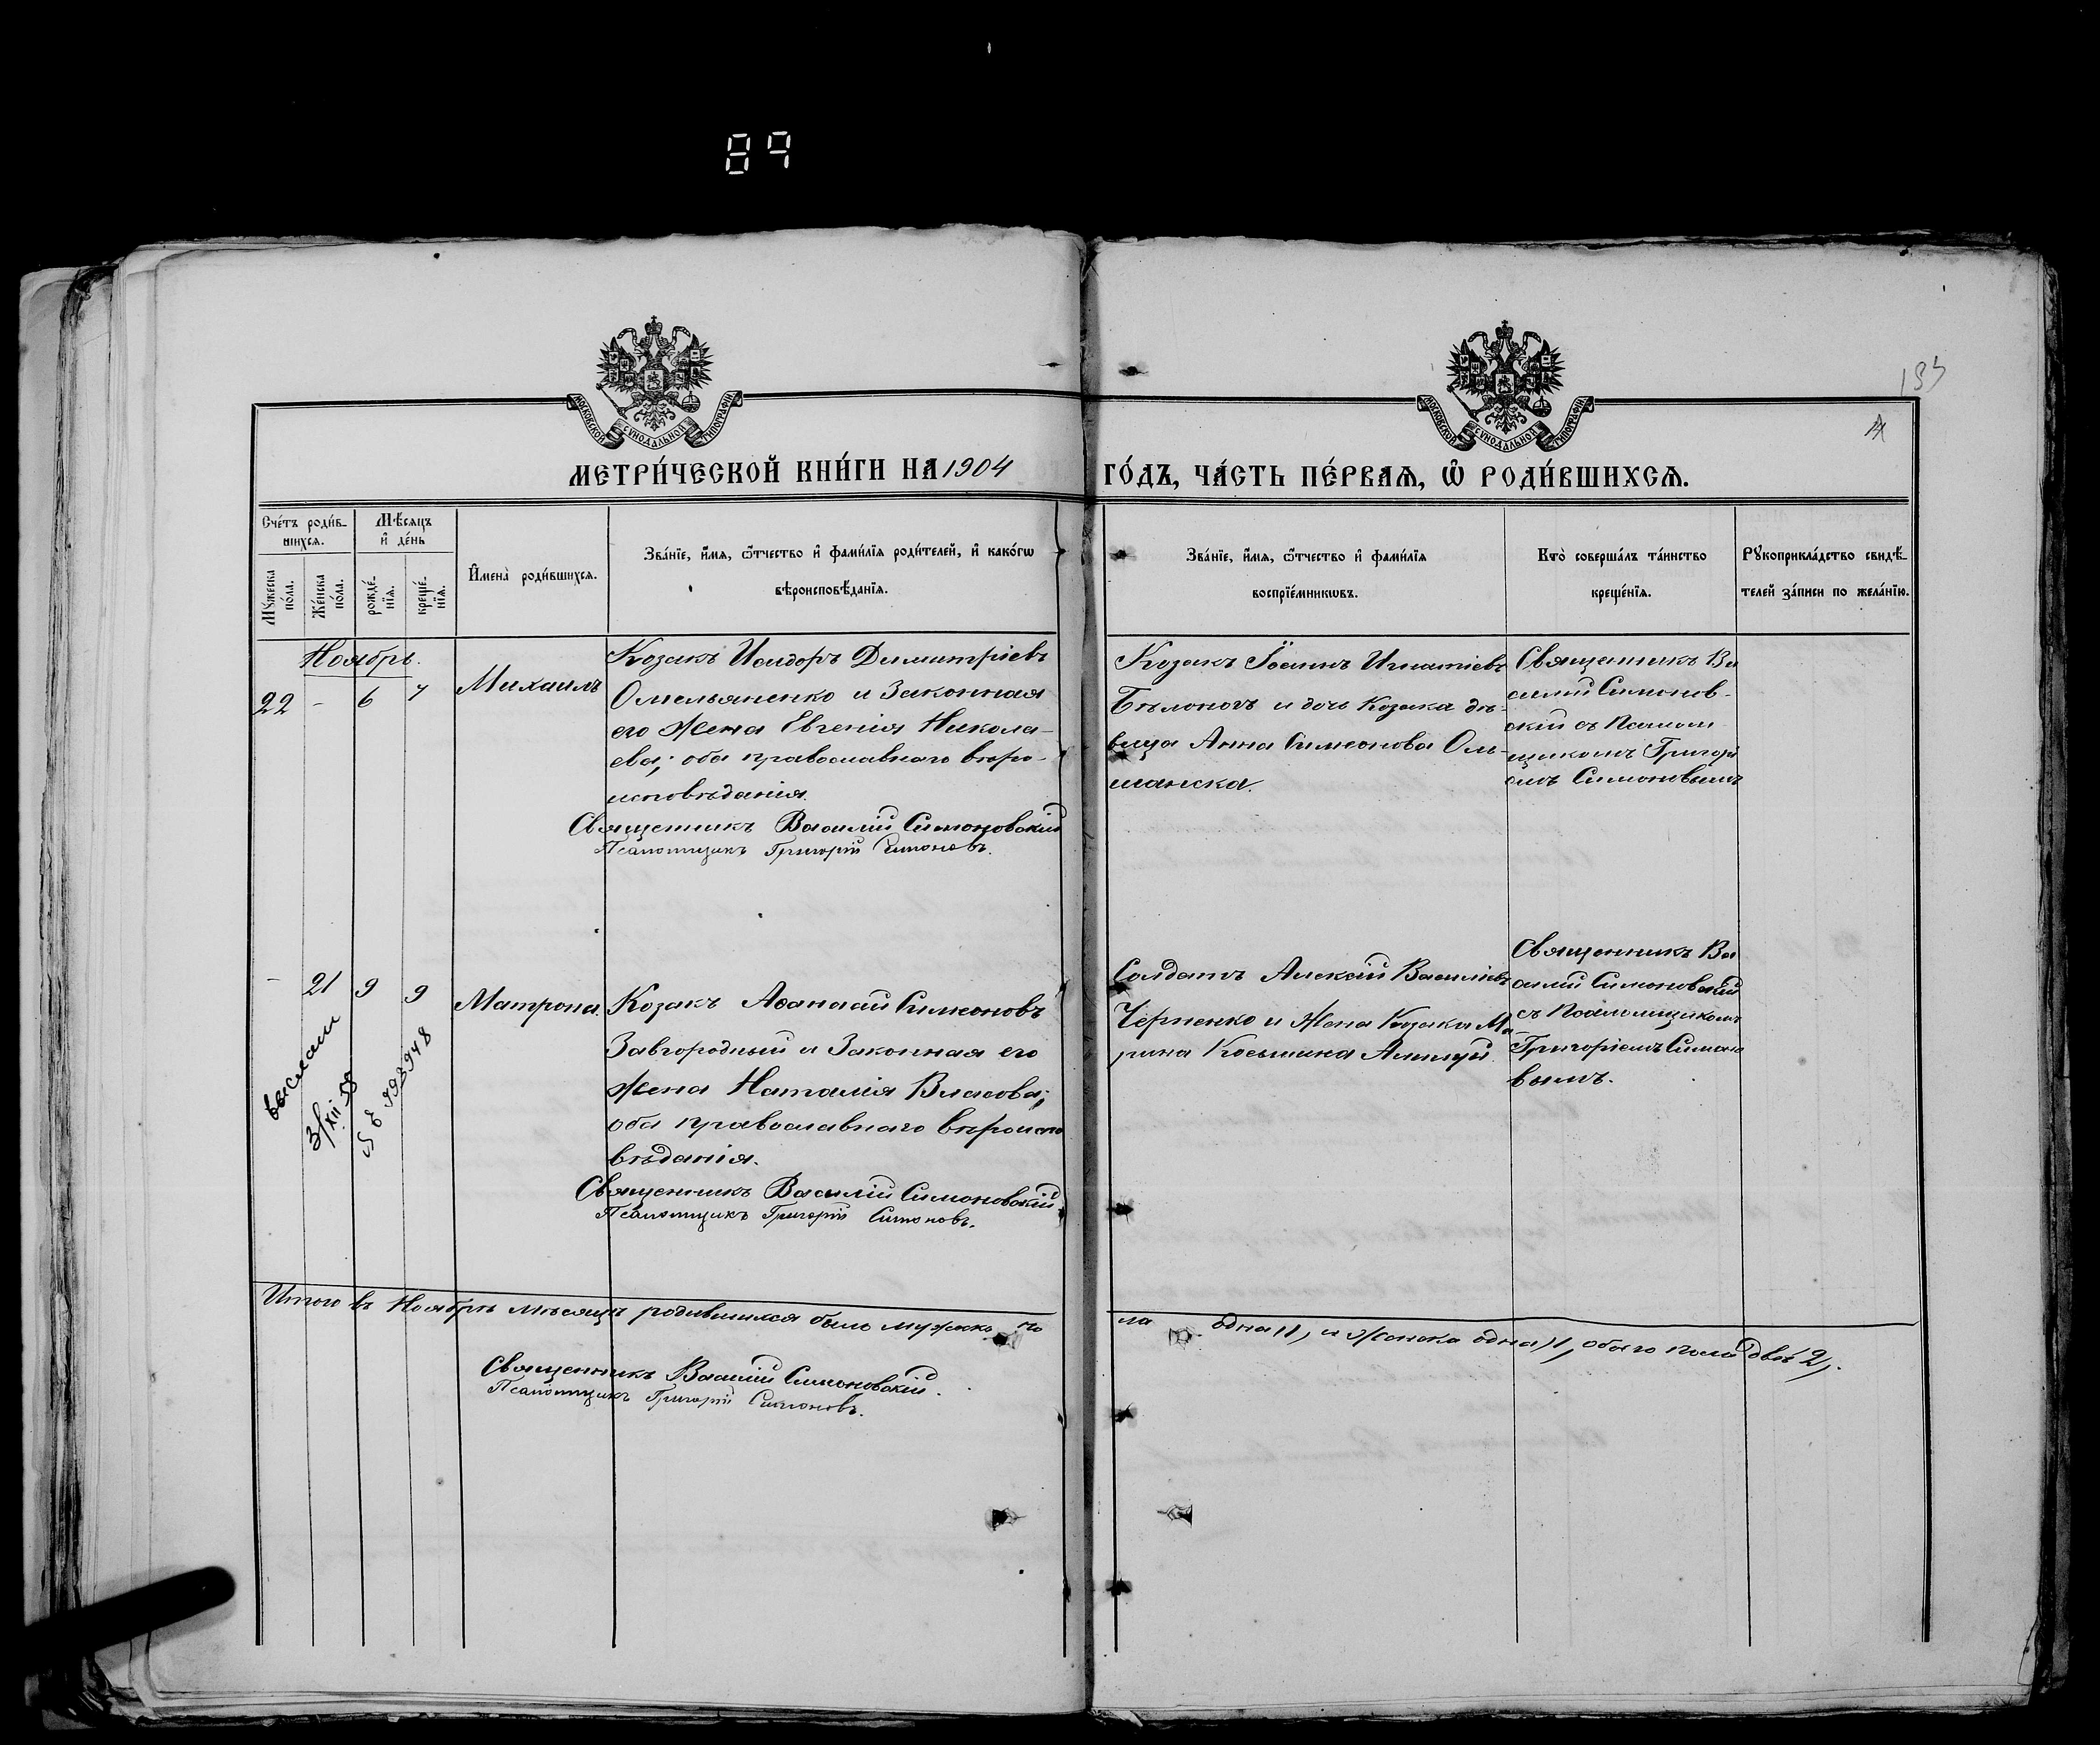 89
193
МОСКОВСКОЙ СУНОДАЛЬНОЙ ТИПОГРАФІИ
МОСКОВСКОЙ СУНОДАЛЬНОЙ ТИПОГРАФІИ
МЕТРИ́ЧЕСКОЙ КНИ́ГИ НА 1904 ГО́ДЪ, ЧА́СТЬ ПЕ́РВАѦ, Ѡ РОДИ́ВШИХСѦ.
Сче́тъ роди́в-
шихсѧ.
Мѣ́сѧцъ
и҆ де́нь
Мꙋ́жеска
по́ла.
Же́нска
по́ла.
рожде́-
нїѧ.
креще́-
нїѧ.
И҆мена̀ роди́вшихсѧ.
Зва́нїе, и҆́мѧ, ѻ҆́тчество и҆ фами́лїѧ роди́телей, и҆ како́гѡ
вѣроисповѣ́данїѧ.
Зва́нїе, и҆́мѧ, ѻ҆́тчество и҆ фами́лїѧ
воспрїе́мникѡвъ.
Кто̀ соверша́лъ та́инство
креще́нїѧ.
Рꙋкоприкла́дство свидѣ́-
телей за́писи по жела́нїю.
Ноябрь.
22 - 6 7 Михаилъ
Козакъ Исидоръ Димитріевъ
Омельяненко и Законная
его Жена Евгенія Никола-
ева; оба православнаго вѣро-
исповѣданія.
Священникъ Василій Симоновскій
Псаломщикъ Григорій Симоновъ.
Козакъ Іоаннъ Игнатіевъ
Бѣлоногъ и дочь Козака дѣ-
вица Анна Симеонова Оль-
шанска.
Священникъ Ва
силій Симонов-
скій съ Псалом
щикомъ Григорі
емъ Симоновымъ
- 21 9 9 Матрона.
выслан
3/XII 58
Козакъ Аѳанасій Симеоновъ
Завгородный и Законная его
Жена Наталія Власова;
оба православнаго вѣроиспо
вѣданія.
Священникъ Василій Симоновскій
Псаломщикъ Григорій Симоновъ.
Солдатъ Алексій Василіевъ
Черненко и Жена Козака Ма-
рина Косьмина
Священникъ Ва
силій Симоновскій
съ Псаломщикомъ
Григоріемъ Симоно
вымъ.
Итого въ Ноябрѣ мѣсяцѣ родившихся было мужска по
ла одна 1, и Женска одна 1, обоего пола двѣ 2,.
Священникъ Василій Симоновскій.
Псаломщикъ Григорій Симоновъ.